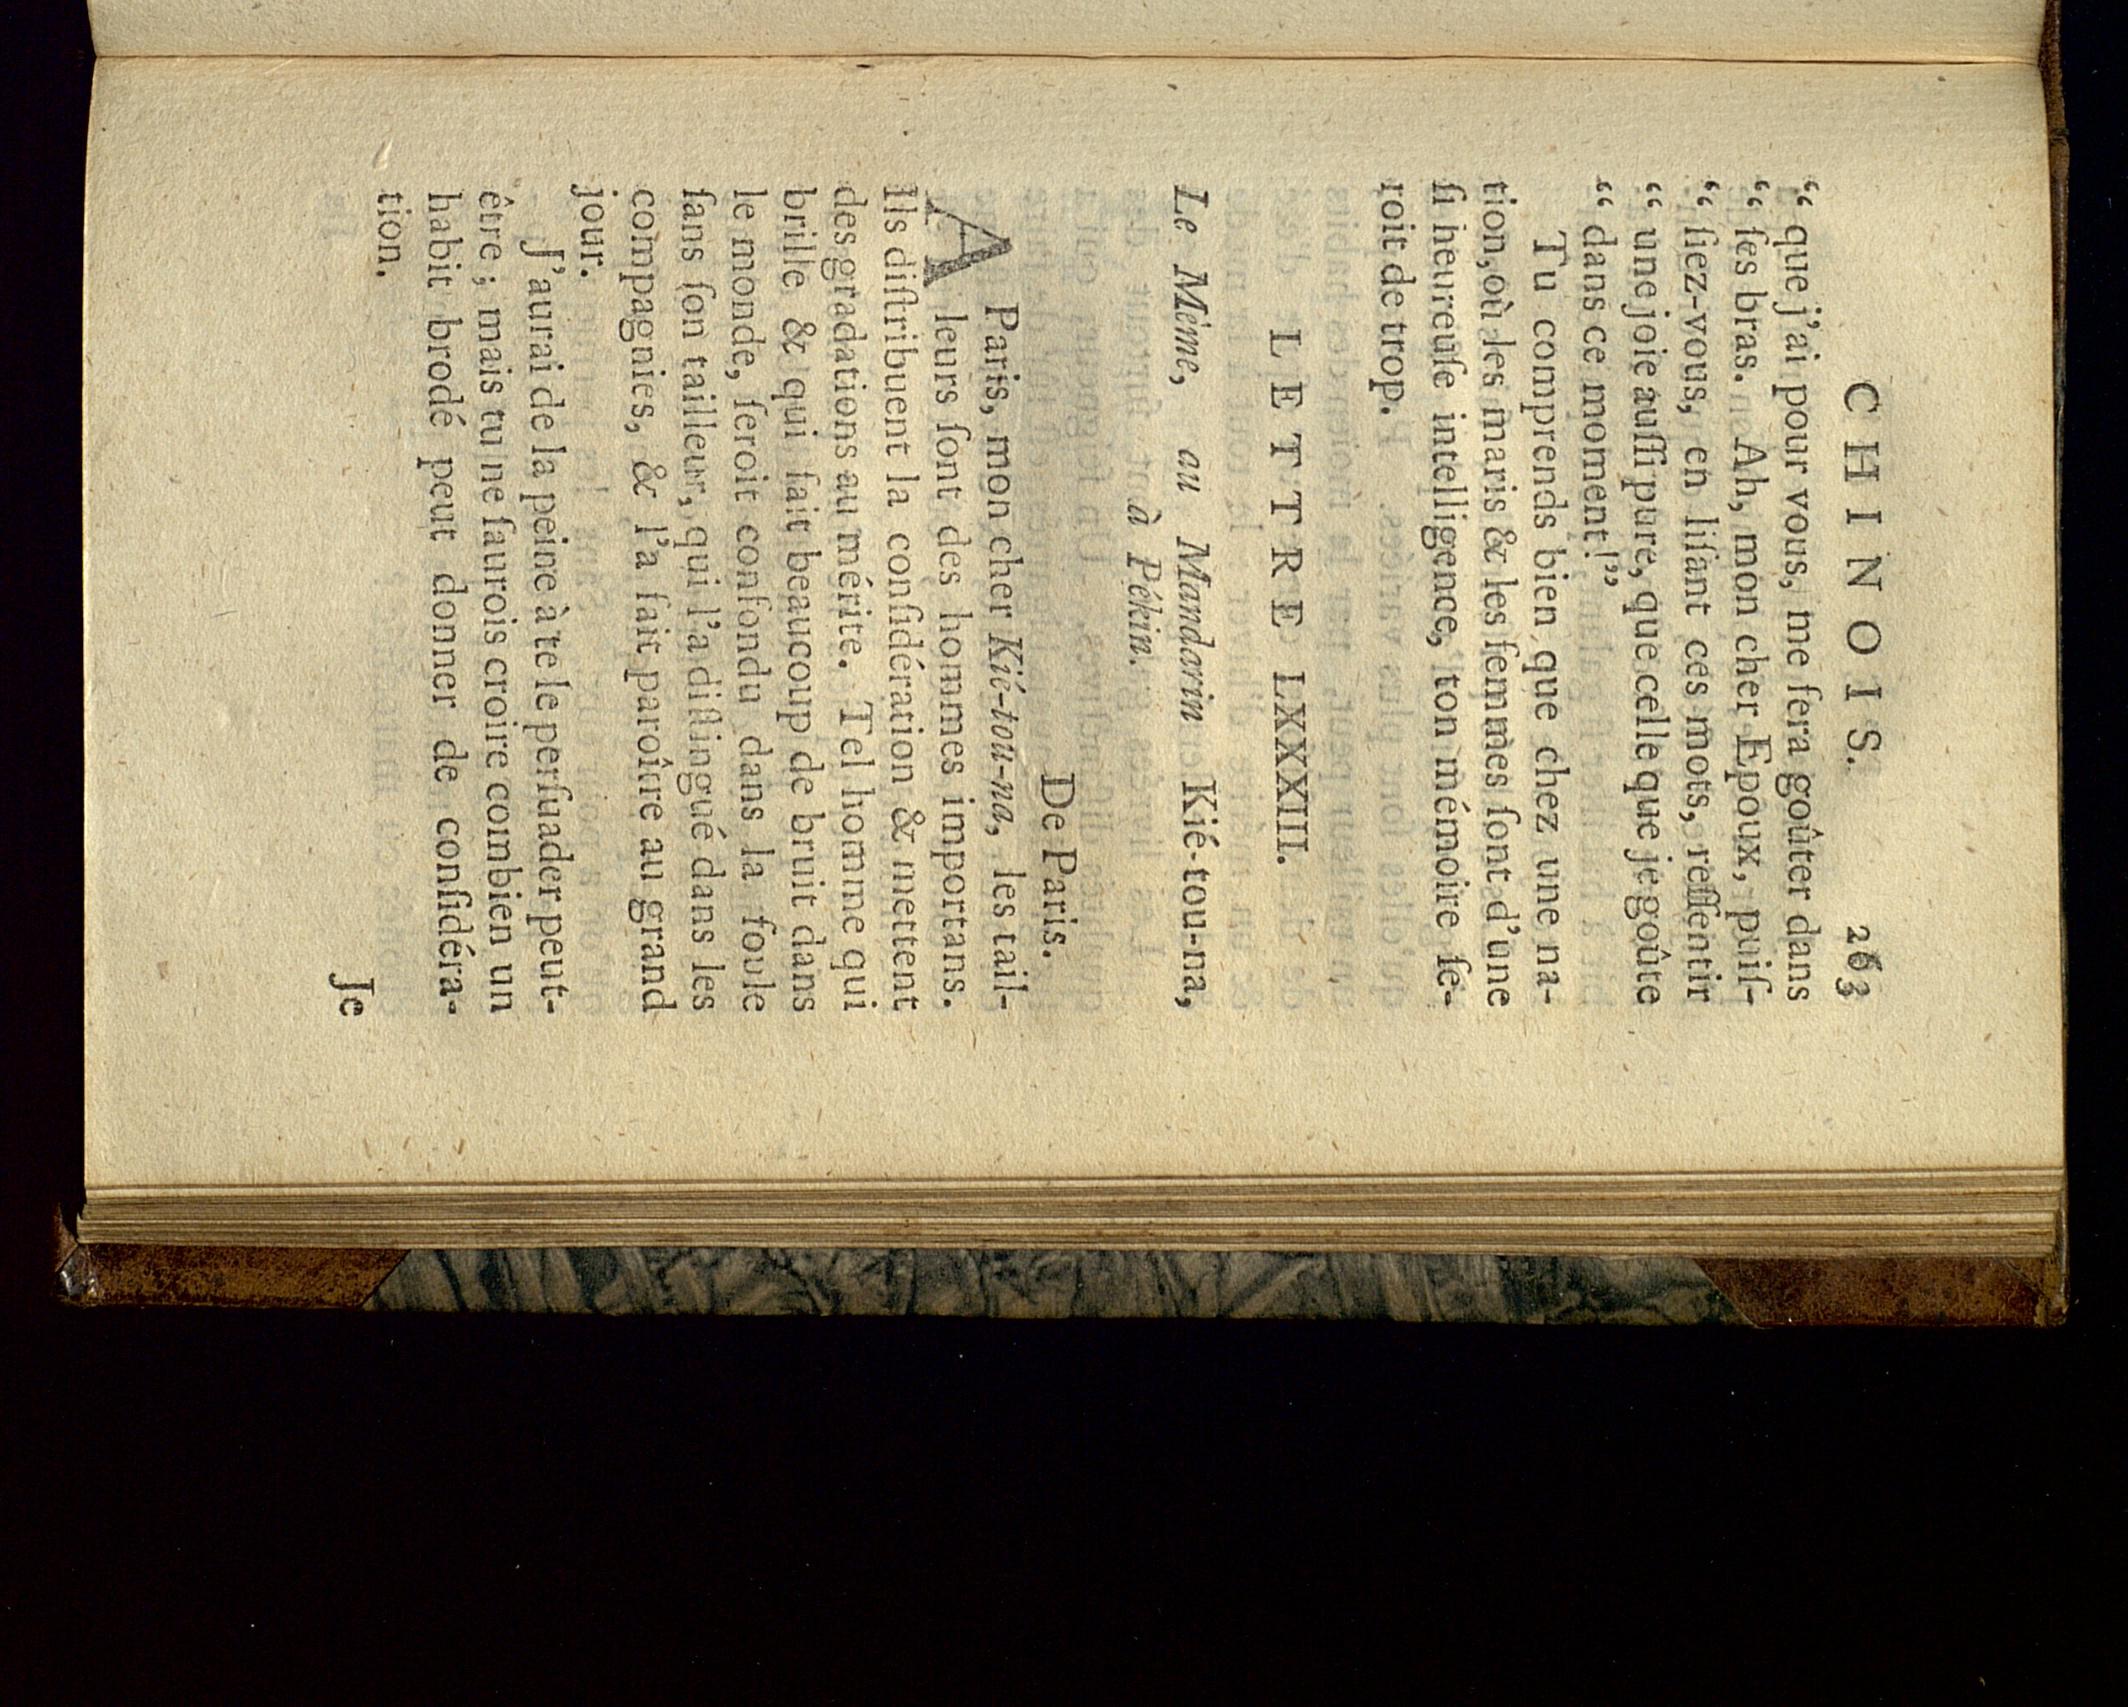 CHINOIS. 263
“ que j'ai pour vous, me ſera goûter dans
“ ſes bras. Ah, mon cher Epoux, puiſ-
“ ſiez-vous, en liſant ces mots, reſſentir
“ une joie auſſi pure, que celle que je goûte
“ dans ce moment!”
Tu comprends bien que chez une na-
tion, où les maris & les femmes ſont d'une
ſi heureuſe intelligence, ton mémoire ſe-
roit de trop.
LETTRE LXXXIII.
Le Même, au Mandarin Kié-tou-na,
à Pékin.
De Paris.
A Paris, mon cher Kié-tou-na, les tail-
leurs ſont des hommes importans.
Ils diſtribuent la conſidération & mettent
des gradations au mérite. Tel homme qui
brille & qui fait beaucoup de bruit dans
le monde, ſeroit confondu dans la foule
ſans ſon tailleur, qui l'a diſtingué dans les
compagnies, & l'a fait paroître au grand
jour.
J'aurai de la peine à te le perſuader peut-
être ; mais tu ne ſaurois croire combien un
habit brodé peut donner de conſidéra-
tion.
Je